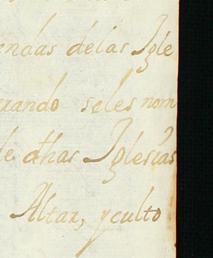 endas delas Igle
uando seles nom
de dhas Iglesias
Altar, y culto